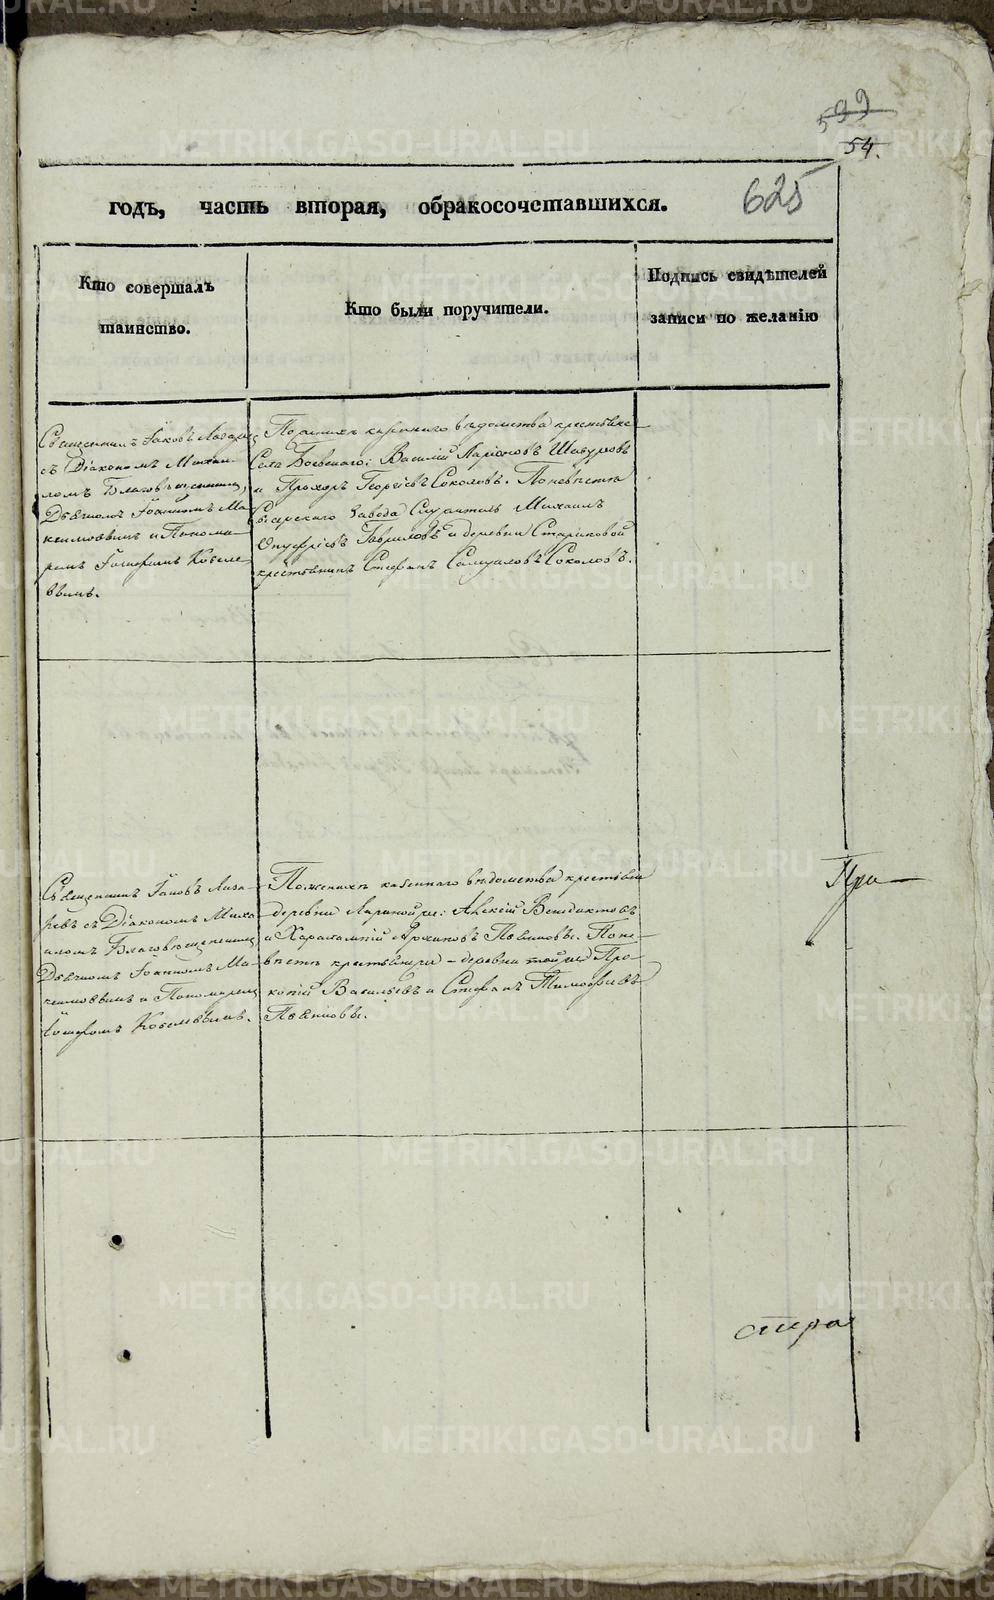 599
54.
625
годъ, часть вторая, обракосочетавшихся.
Кто совершалъ
таинство.
Кто были поручители.
Подпись свидѣтелей
записи по желанію
Священникъ Іаковъ
съ Діакономъ Михаи-
ломъ Благовѣщенским,
Дьячкомъ Іоанномъ Ма-
ксимовымъ и Понома-
ремъ Іосифомъ Кобеле-
вымъ.
По женихѣ казеннаго вѣдомства крестьяне
Села Боевскаго: Василій Ларіоновъ Шабуровъ
и Прохоръ Георгіевъ Соколовъ. По невѣстѣ
завода Служитель Михаилъ
Онуфріевъ Гавриловъ и деревни Стариковой
крестьянинъ Стефанъ Самуиловъ Соколовъ.
Священникъ Іаковъ Лаза-
ревъ съ Діакономъ Миха-
иломъ Благовѣщенским
Дьячкомъ Іоанномъ Ма-
ксимовымъ и Пономарем
Іосифомъ Кобелевымъ.
По женихѣ казеннаго вѣдомства крестьяне
деревни Алексій Венидиктовъ
и Харалампій Архиповъ По не-
вѣстѣ крестьяне деревни той же Про-
копій Васильевъ и Стефанъ Тимофеевъ
При
METRIKI.GASO-URAL.RU